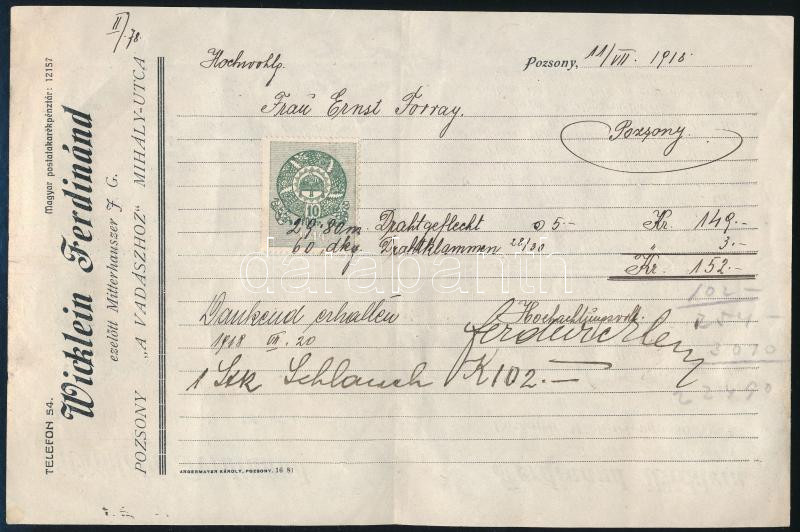 II/78.
Magyar postatakarékpénztár: 12157
TELEFON 54.
Wicklein Ferdinánd
ezelőtt Mitterhauszer J. G.
POZSONY „A VADÁSZHOZ" MIHÁLY-UTCA
Hochwohlg.
Pozsony, 11/VII. 1918
Frau Ernst Torray.
Pozsony.
10
29.80 m Drahtgeflecht 5.- Kr. 149.-
60 dkg Drahtklammen 28/30 " 3.-
Kr. 152.-
Dankend erhalten
Hochachtungsvoll
1918 VII. 20
1 Stk Schlauch K 102.-
102-
254-
3070
ANGERMAYER KÁROLY, POZSONY. 16 81
darabanth